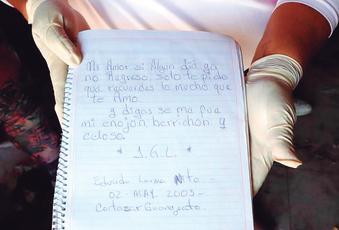 Mi Amor si Algun dia ya
no Regreso, solo te pido
que recuerdes lo mucho que
te Amo.
y digas se me fue
mi enojon, berrichon y
celoso.
* J.G.L. *
Eduardo Lerma Nito
02 - MAY. 2003 -
Cortazar Guanajuato.